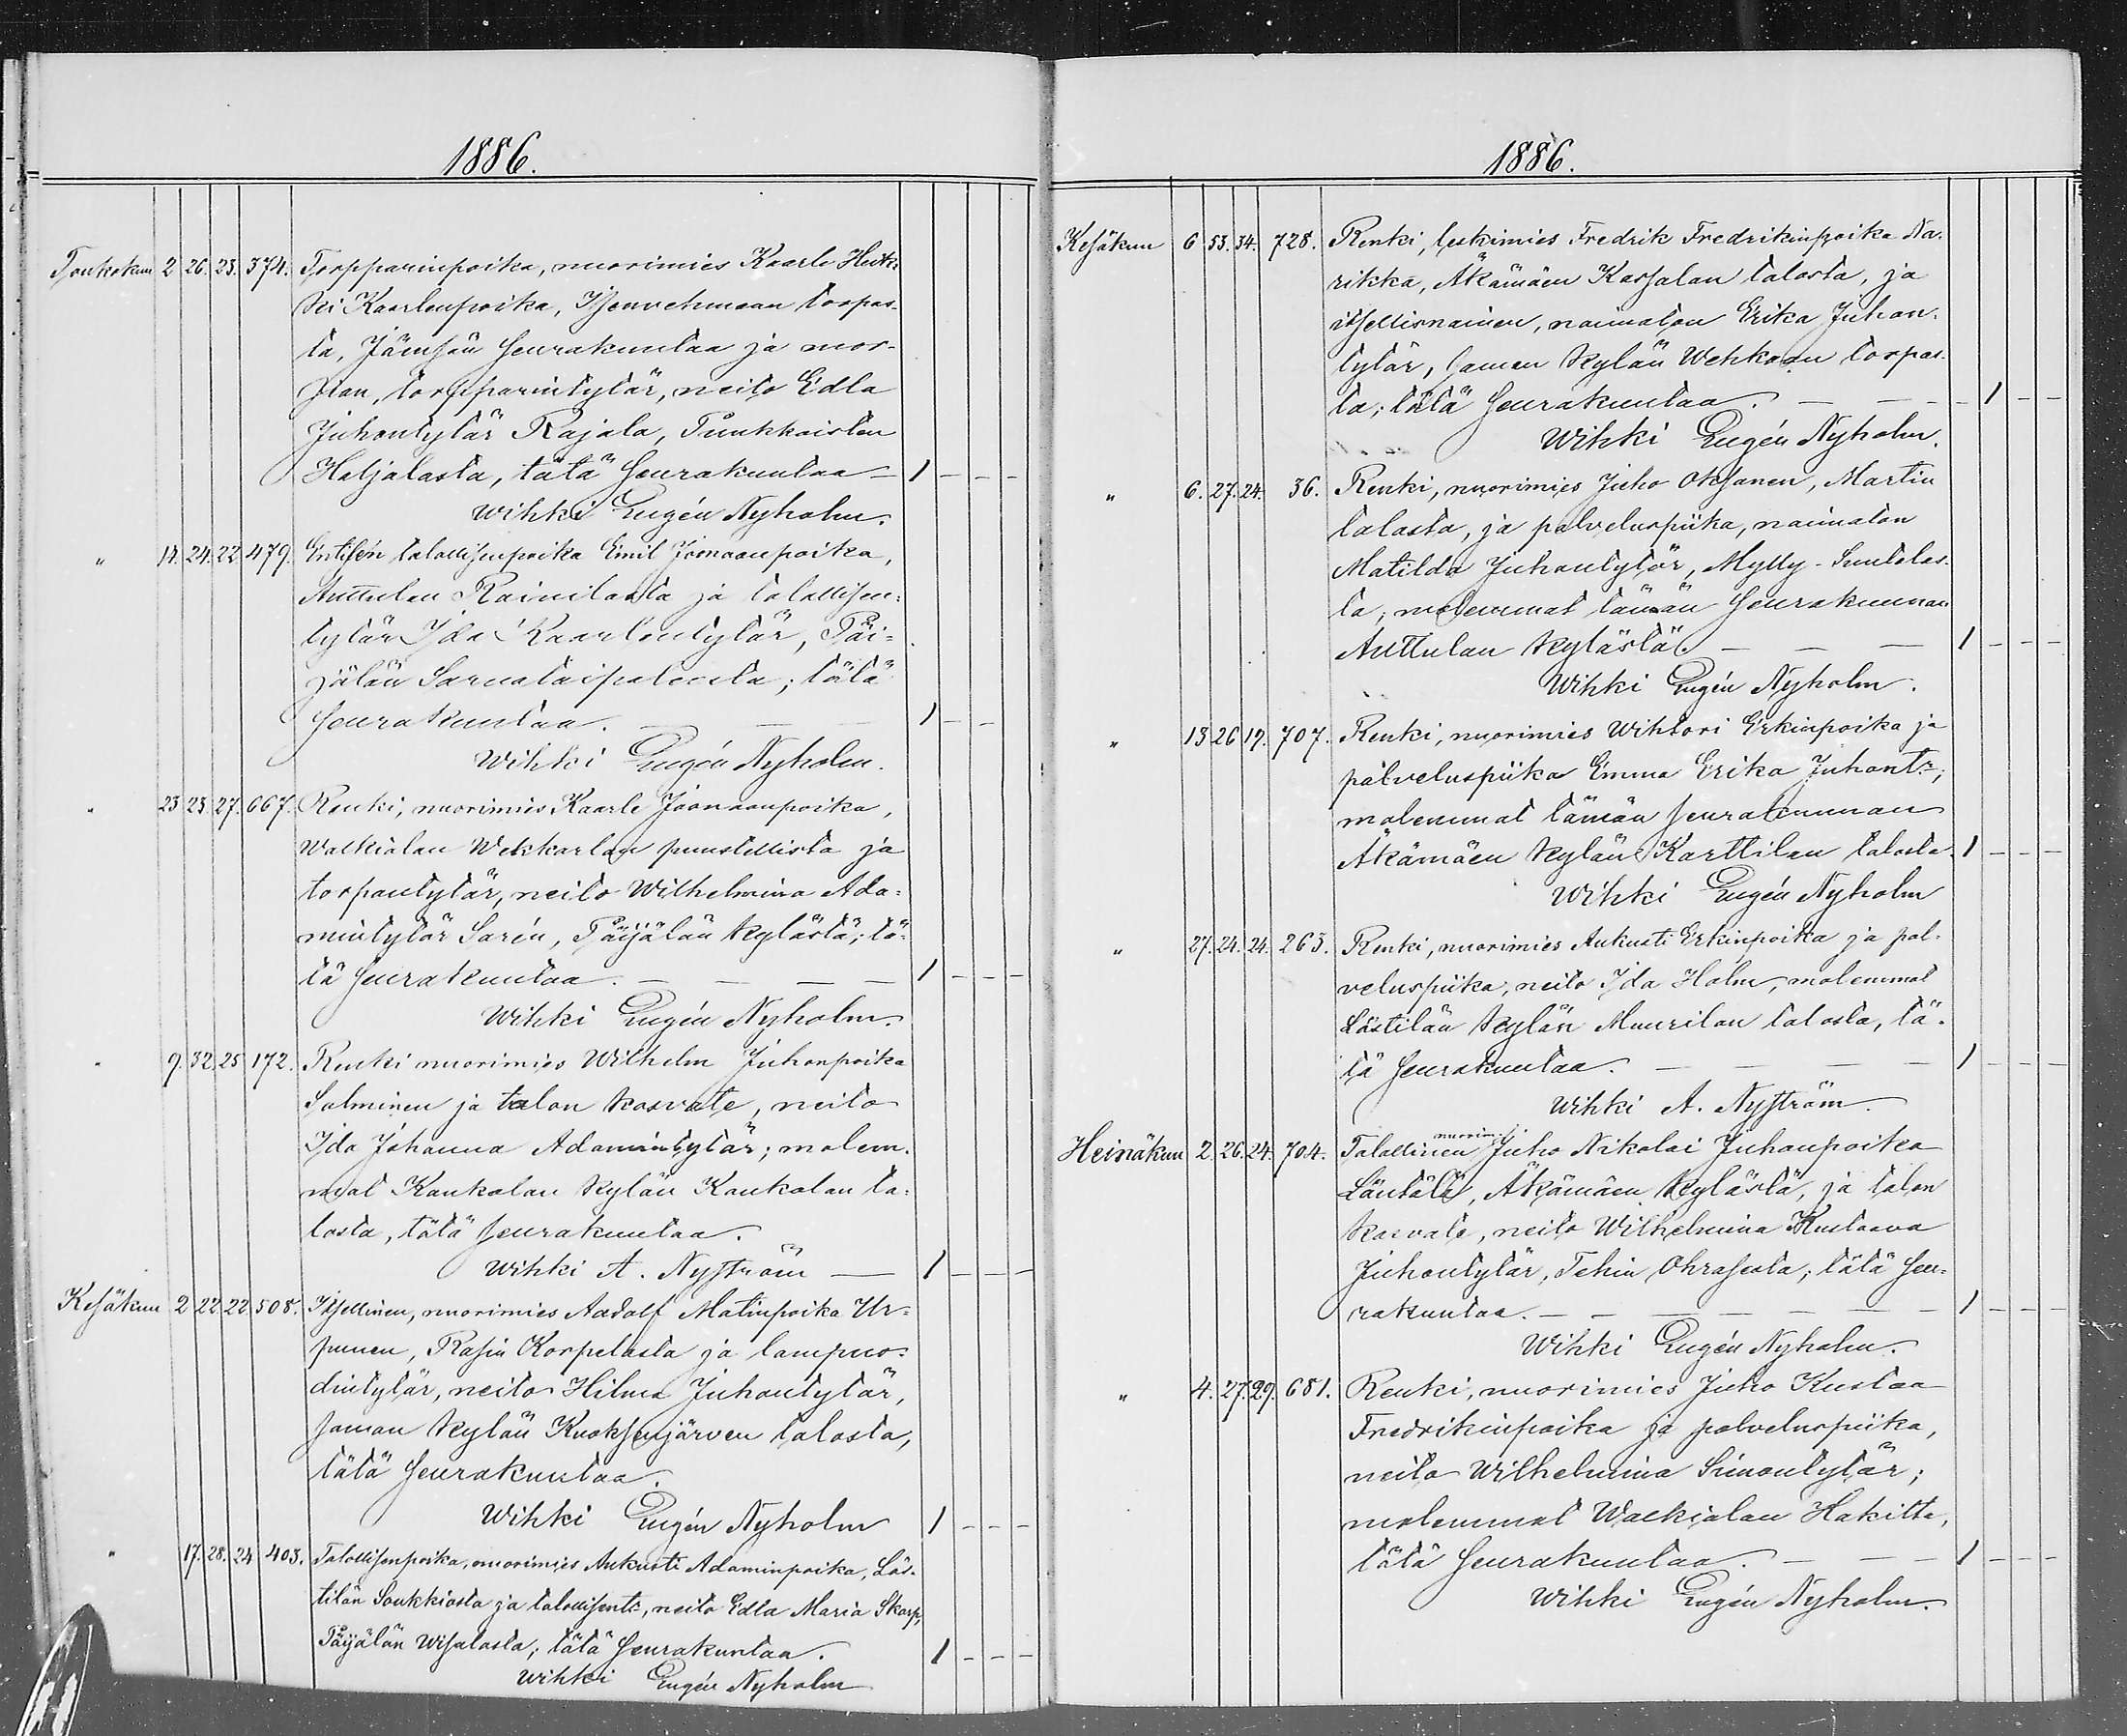 1886.
Toukokuu 2 26. 23. 374. Torpparinpoika, nuorimies Kaarle Heik-
ki Kaarlenpoika, Isenvehmaan torpas-
ta, Jämsän seurakuntaa ja mor-
sian, torpparintytär, neito Edla
Juhontytär Rajala, Puukkoisten
Haljalasta, tätä seurakuntaa — 1 - - -
Wihki Eugén Nyholm.
" 14. 24. 22. 479. Entisen talollisenpoika Emil Joonaanpoika,
Auttulan Rainilasta ja talollisen-
tytär Ida Kaarlentytär, Päi-
jälän Sarvataipaleesta; tätä
seurakuntaa. — — — 1 - -
Wihki Eugén Nyholm.
" 23 23. 27. 667. Renki, nuorimies Kaarle Joonaanpoika,
Walkialan Wekkarlan puustellista ja
torpantytär, neito Wilhelmina Ada-
mintytär Sarén, Päijälän kylästä; tä-
tä seurakuntaa. — — — — 1 - - -
Wihki Eugén Nyholm.
" 9. 32. 25 172. Renki nuorimies Wilhelm Juhonpoika
Salminen ja talon kasvate, neito
Ida Johanna Adamintytär; molem-
mat Kaukolan kylän Kaukolan ta-
losta, tätä seurakuntaa.
Wihki A. Nyström — 1 - - -
Kesäkuu 2 22 22 508. Itsellinen, nuorimies Aadolf Matinpoika Ur-
punen, Rasin Korpelasta ja lampuo-
dintytär, neito Hilma Juhontytär,
saman kylän Kuoksenjärven talosta,
tätä seurakuntaa.
Wihki Eugén Nyholm 1 - - -
" 17. 28. 24 403. Talollisenpoika, nuorimies Aukusti Adaminpoika, Läs-
tilän Soukkiosta ja talollisent:, neito Edla Maria Skarp,
Päijälän Wisalasta; tätä seurakuntaa. 1 - - -
Wihki Eugén Nyholm
1886.
Kesäkuu 6 53. 34. 728. Renki, leskimies Fredrik Fredrikinpoika Na-
rikka, Äkämäen Kassalan talosta, ja
itsellisnainen, naimaton Erika Juhon-
tytär, saman kylän Wehkaan torpas-
ta; tätä seurakuntaa. — — — 1 - -
Wihki Eugén Nyholm.
" 6. 27. 24. 36. Renki, nuorimies Juho Oksanen, Martin
talosta, ja palveluspiika, naimaton
Matilda Juhontytär, Mylly-Suntolas-
ta; molemmat tämän seurakunnan
Auttulan kylästä. — — — 1 - - -
Wihki Eugén Nyholm.
" 13 26 19. 707. Renki, nuorimies Wihtori Erkinpoika ja
palveluspiika Emma Erika Juhont:,
molemmat tämän seurakunnan
Äkämäen kylän Karttilan talosta. 1 - - -
Wihki Eugén Nyholm
" 27. 24. 24. 263. Renki, nuorimies Aukusti Erkinpoika ja pal-
veluspiika, neito Ida Holm, molemmat
Lästilän kylän Muurilan talosta, tä-
tä seurakuntaa. — — — 1 - - -
Wihki A. Nyström.
nuorim.
Heinäkuu 2. 26. 24. 704. Talollinen Juho Nikolai Juhonpoika
Läntälä, Äkämäen kylästä, ja talon
kasvate, neito Wilhelmina Kustaava
Juhontytär, Tehin Ohrasesta; tätä seu-
rakuntaa. — — — — — 1 - - -
Wihki Eugén Nyholm.
" 4. 27. 29. 681. Renki, nuorimies Juho Kustaa
Fredrikinpoika ja palveluspiika,
neito Wilhelmina Simontytär;
molemmat Walkialan Hakilta,
tätä seurakuntaa. — — — 1 - - -
Wihki Eugén Nyholm.